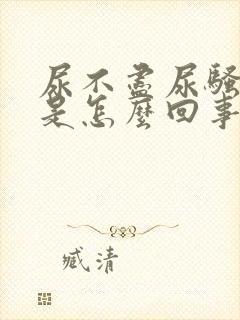 尿不盡尿騷
是怎麼回事
臧清